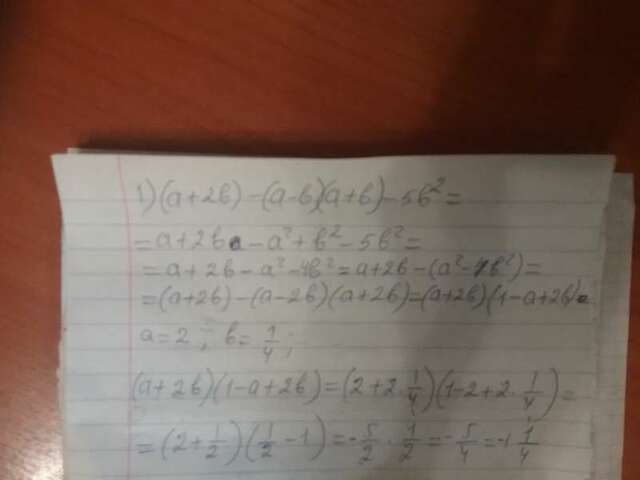 1) (a+2b) - (a-b)(a+b) - 5b² =
= a+2b - a² + b² - 5b² =
= a+2b - a² - 4b² = a+2b - (a² - 4b²) =
= (a+2b) - (a-2b)(a+2b) = (a+2b)(1-a+2b)
a = 2 ; b = 1/4 ;
(a+2b)(1-a+2b) = (2+2·1/4)(1-2+2·1/4) =
= (2+1/2)(1/2 - 1) = -5/2 · 1/2 = -5/4 = -1 1/4